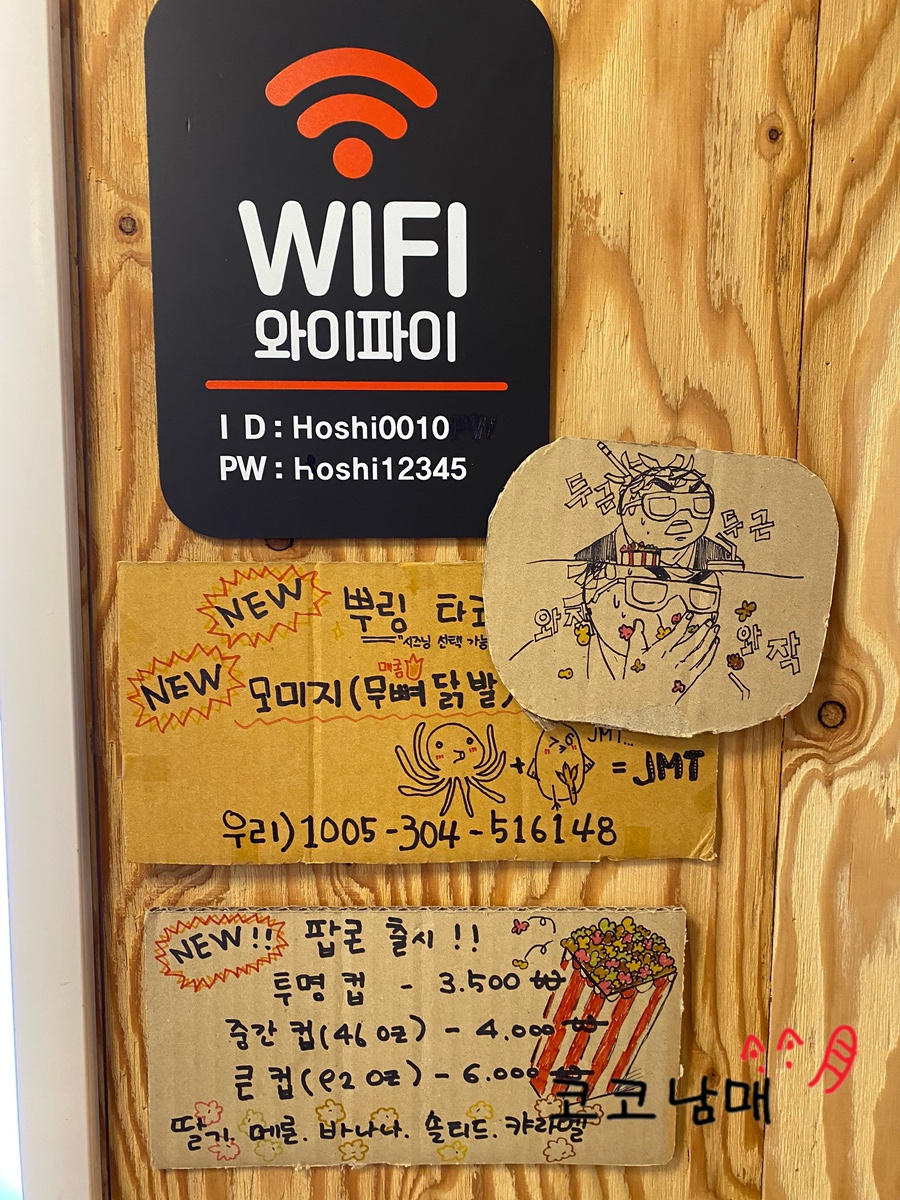 WIFI
와이파이
I D : Hoshi0010
PW : hoshi12345
두근
두근
와작
와작
NEW 뿌링 타코
"시즈닝 선택 가능
매콤
NEW 모미지(무뼈 닭발)
JMT...
+ = JMT
우리) 1005-304-516148
NEW!! 팝콘 출시!!
투명 컵 - 3.500 ₩
중간 컵(46 oz) - 4.000 ₩
큰 컵( oz) - 6.000 ₩
딸기. 메론. 바나나. 솔티드. 캬라멜
코코남매